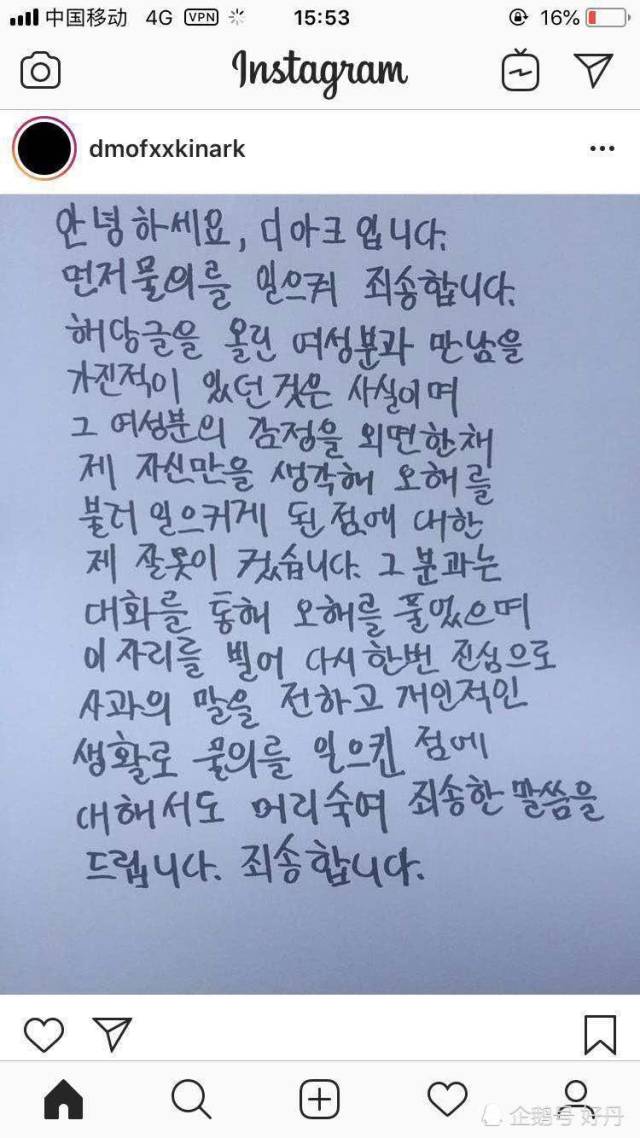 中国移动 4G VPN 15:53 16%
Instagram
dmofxxkinark
안녕하세요, 디아크입니다.
먼저 물의를 일으켜 죄송합니다.
해당글을 올린 여성분과 만남을
가진적이 있던것은 사실이며
그 여성분의 감정을 외면한채
제 자신만을 생각해 오해를
불러 일으키게 된 점에 대한
제 잘못이 컸습니다. 그 분과는
대화를 통해 오해를 풀었으며
이 자리를 빌어 다시한번 진심으로
사과의 말을 전하고 개인적인
생활로 물의를 일으킨 점에
대해서도 머리숙여 죄송한 말씀을
드립니다. 죄송합니다.
企鹅号 好丹